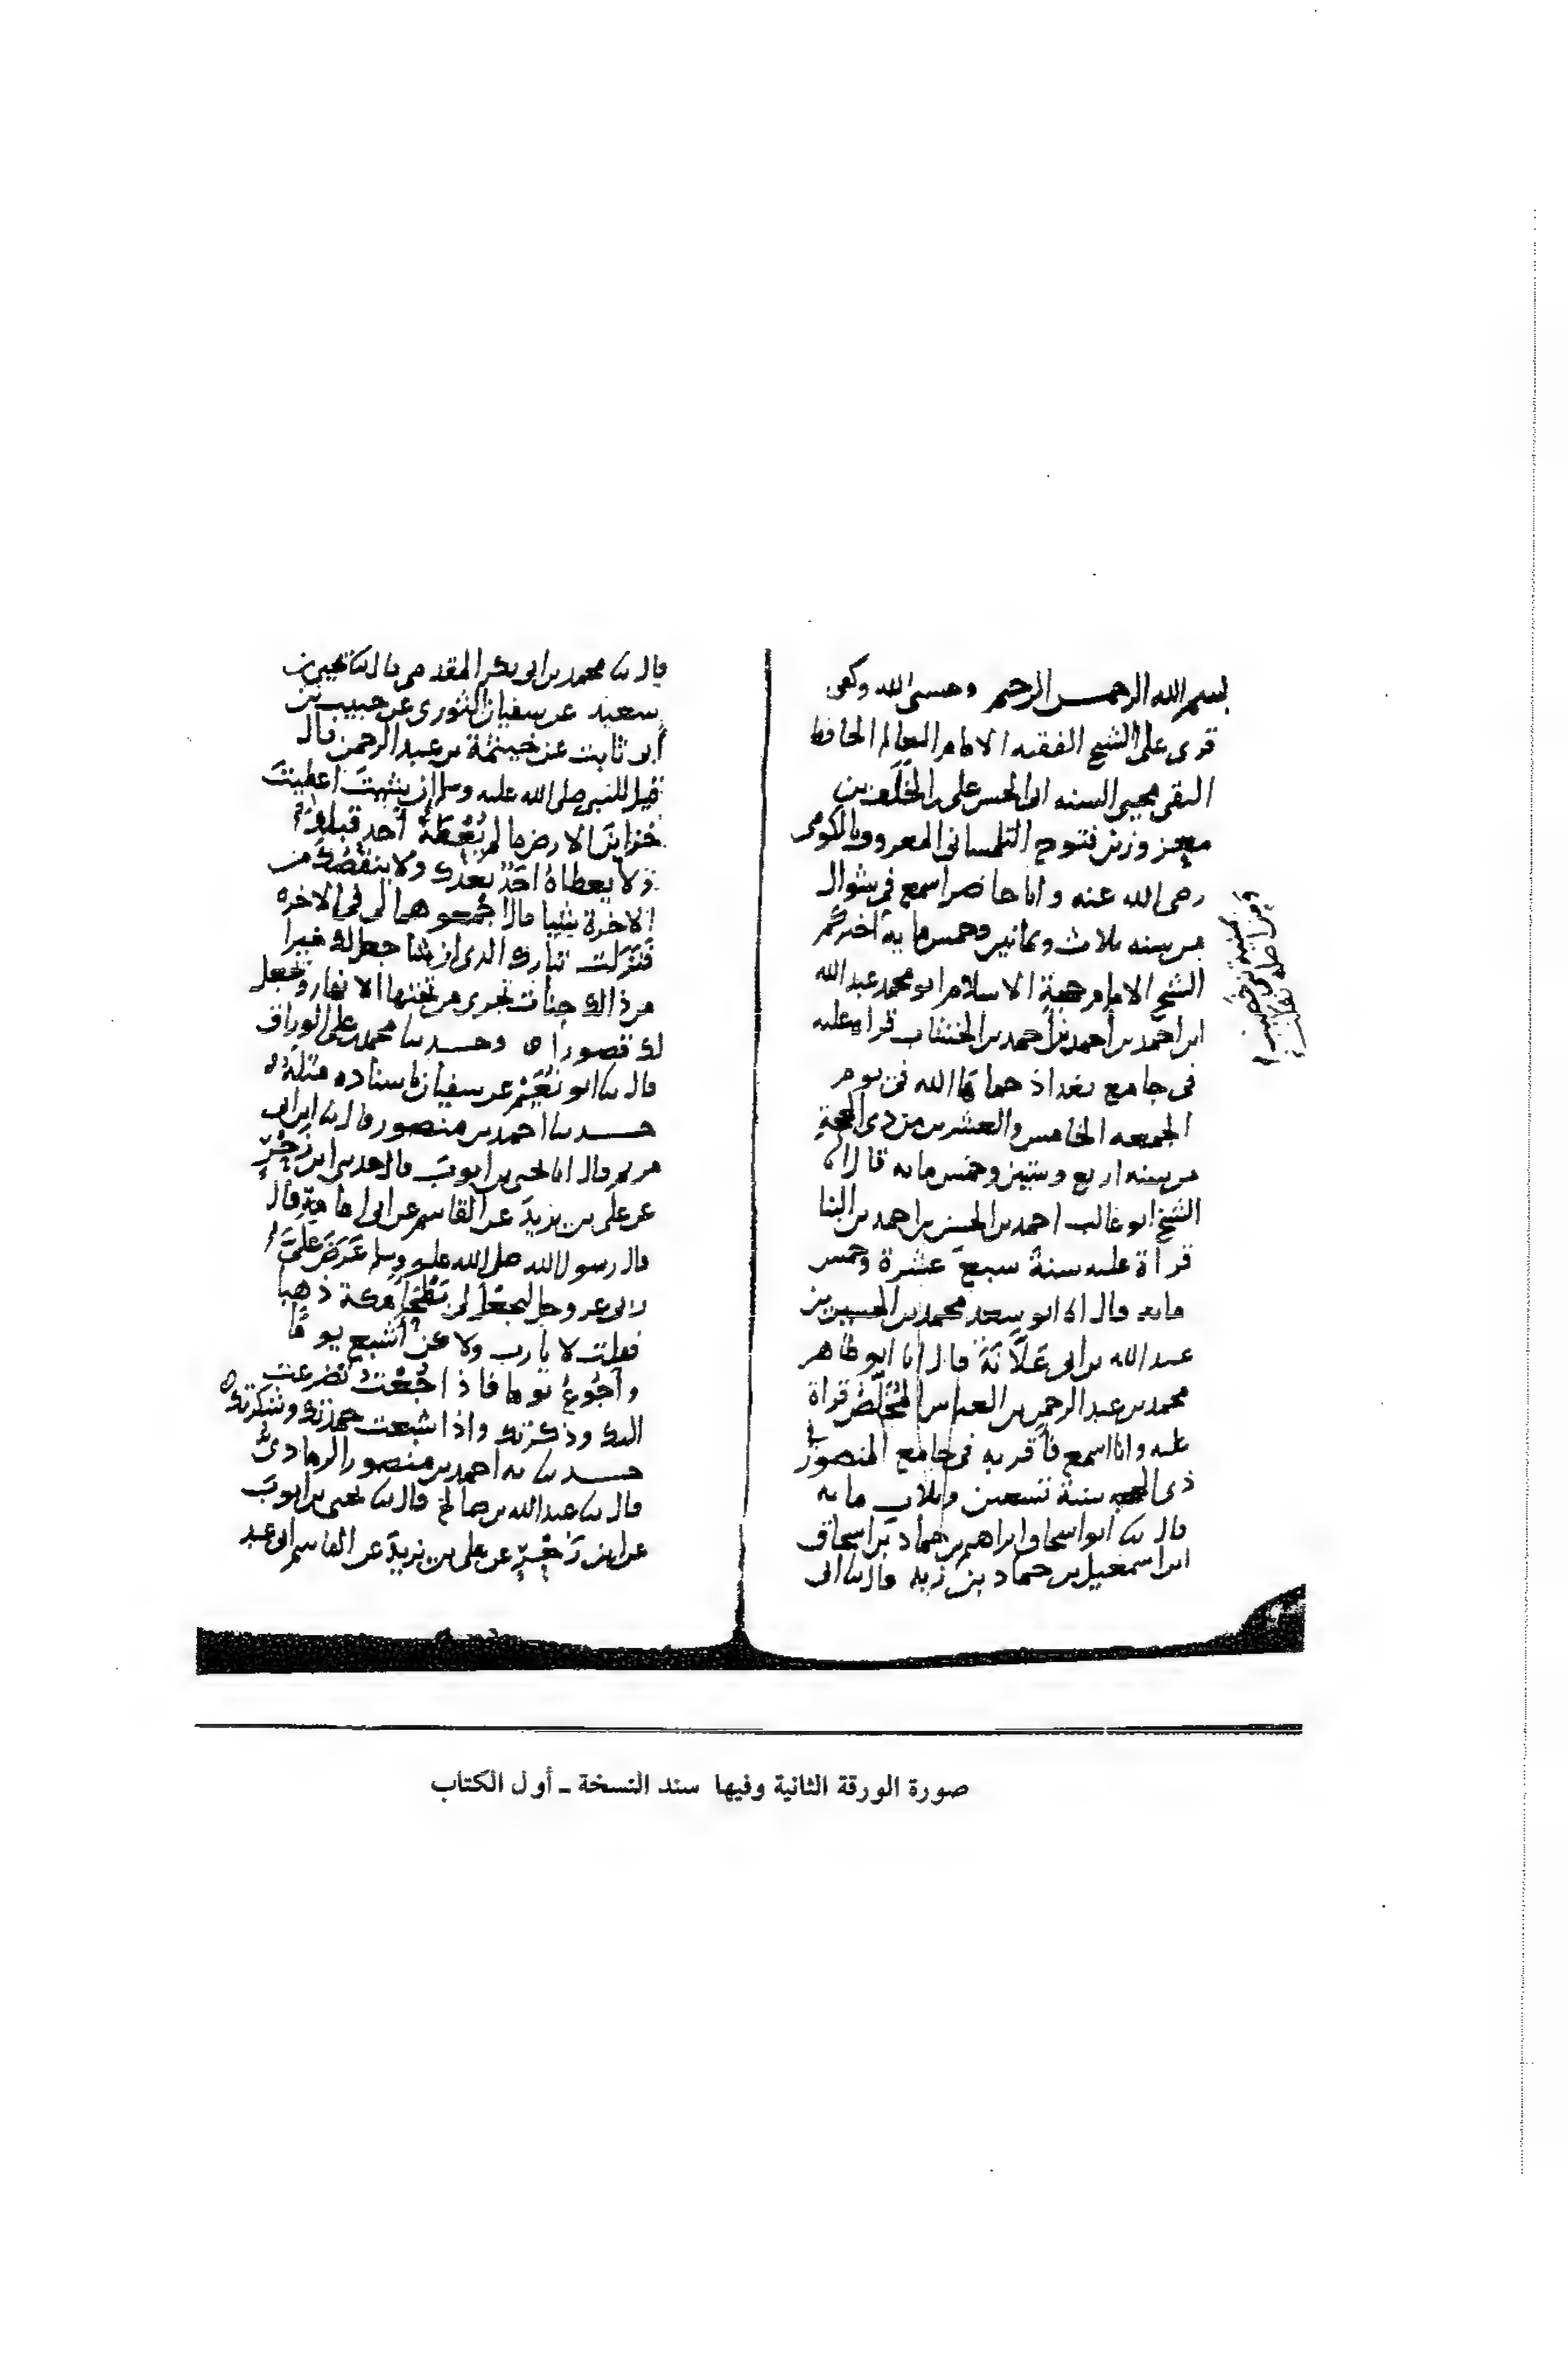 بسم الله الرحمن الرحيم وحسبي الله وكفى
قرى على الشيخ الفقيه الامام العالم الحافظ
التقى محيى السنه ابى الحسن على بن خلف بن
معزوز بن فتوح التلمسانى المعروف بالكومى
رضى الله عنه وانا حاضر اسمع فى شوال
من سنه ثلاث وثمانين وخمس مايه اخبركم
الشيخ الامام حجة الاسلام ابو محمد عبد الله
ابن احمد بن احمد بن احمد بن الخشاب قراه عليه
فى جامع بغداذ حماها الله فى يوم
الجمعه الخامس والعشرين من ذى الحجة
من سنه اربع وستين وخمس مايه قال انا
الشيخ ابو غالب احمد بن الحسن بن احمد بن البنا
قراة عليه سنة سبع عشرة وخمس
مايه قال انا ابو سعد محمد بن الحسين بن
عبد الله بن ابى علانة قال انا ابو طاهر
محمد بن عبد الرحمن بن العباس المخلص قراة
عليه وانا اسمع فأقر به فى جامع المنصور فى
ذى الحجه سنة تسعين وثلاث مايه
قال ثنا ابو اسحاق ابراهيم بن حماد بن اسحاق
ابن اسمعيل بن حماد بن زيد قال ثنا ابى
قال ثنا محمد بن ابى بكر المقدمى قال ثنا يحيى بن
سعيد عن سفيان الثورى عن حبيب بن
أبى ثابت عن خيثمة بن عبد الرحمن قال
قيل للنبي صلى الله عليه وسلم ان شئت اعطيت
خزائن الارض ما لم يُعْطَهُ أحد قبلك
ولا يعطاه احد بعدك ولا ينقصك من
الاخرة شيا قال اجمعوها لى فى الاخره
فنزلت تبارك الذى ان شا جعل لك خيرا
من ذالك جنات تجرى من تحتها الانهار ويجعل
لك قصورا ه وحدثنا محمد بن على الوراق
قال ثنا ابو نُعَيْم عن سفيان باسناده مثله ه
حدثنا احمد بن منصور قال ثنا ابن ابى
مريم قال انا يحيى بن أيوب قال حدثنى ابن زَحْرٍ
عن على بن يزيد عن القاسم عن ابى امامة قال
قال رسول الله صلى الله عليه وسلم عَرَضَ عَلَىَّ
ربى عز وجل ليجعل لى بَطْحَا مكة ذهبا
فقلت لا يا رب ولاكن أشبع يوما
وأجُوعُ يوما فاذا جُعْتُ تضرعت
اليك وذكرتك واذا شبعت حمدتك وشكرتك ه
حدثنا به احمد بن منصور الرمادىُّ
قال ثنا عبد الله بن صالح قال ثنا يحيى بن أيوب
عن ابن زَحْرٍ عن على بن يزيد عن القاسم ابى عبد
صورة الورقة الثانية وفيها سند النسخة ـ أول الكتاب